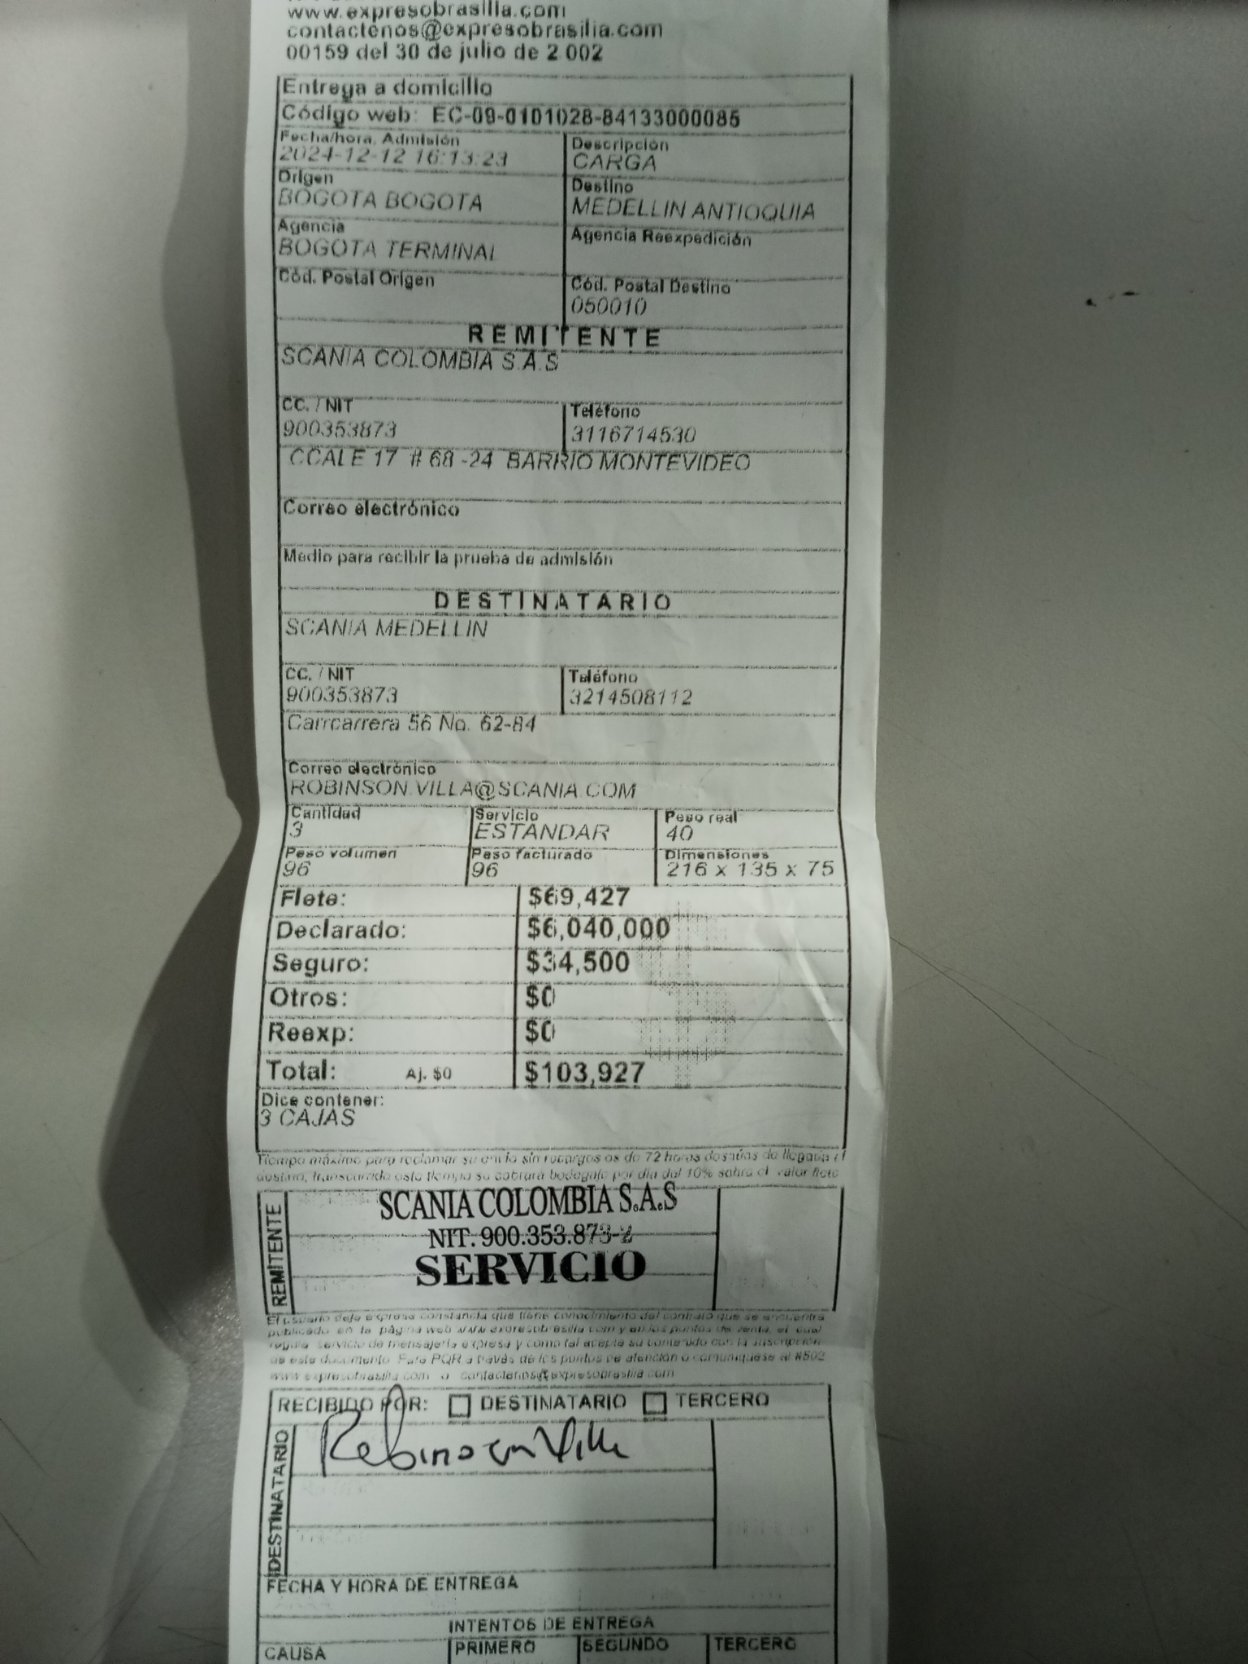 www.expresobrasilia.com
contactenos@expresobrasilia.com
00159 del 30 de julio de 2 002
Entrega a domicilio
Código web: EC-09-0101028-84133000085
Fecha/hora. Admisión
2024-12-12 16:13:23
Descripción
CARGA
Origen
BOGOTA BOGOTA
Destino
MEDELLIN ANTIOQUIA
Agencia
BOGOTA TERMINAL
Agencia Reexpedición
Cód. Postal Origen
Cód. Postal Destino
050010
REMITENTE
SCANIA COLOMBIA S.A.S
CC. / NIT
900353873
Teléfono
3116714530
CCALE 17 # 68 -24 BARRIO MONTEVIDEO
Correo electrónico
Medio para recibir la prueba de admisión
DESTINATARIO
SCANIA MEDELLIN
CC. / NIT
900353873
Teléfono
3214508112
Carrcarrera 56 No. 62-84
Correo electrónico
ROBINSON.VILLA@SCANIA.COM
Cantidad
3
Servicio
ESTANDAR
Peso real
40
Peso volumen
96
Peso facturado
96
Dimensiones
216 x 135 x 75
Flete: $69,427
Declarado: $6,040,000
Seguro: $34,500
Otros: $0
Reexp: $0
Total: Aj. $0 $103,927
Dice contener:
3 CAJAS
Tiempo máximo para reclamar su envío sin recargos es de 72 horas de llegada el
destino, transcurrido este tiempo se cobrará bodegaje por día del 10% sobre el valor flete
REMITENTE
SCANIA COLOMBIA S.A.S
NIT. 900.353.873-2
SERVICIO
El usuario deja expresa constancia que tiene conocimiento del contrato que se encuentra
publicado en la página web www.expresobrasilia.com y en los puntos de venta, el cual
regula servicio de mensajería expresa y como tal acepta su contenido con la suscripción
de este documento. Para PQR a través de los puntos de atención o comuníquese al #502
www.expresobrasilia.com o contactenos@expresobrasilia.com
RECIBIDO POR: DESTINATARIO TERCERO
DESTINATARIO
Robinson Villa
FECHA Y HORA DE ENTREGA
INTENTOS DE ENTREGA
CAUSA PRIMERO SEGUNDO TERCERO